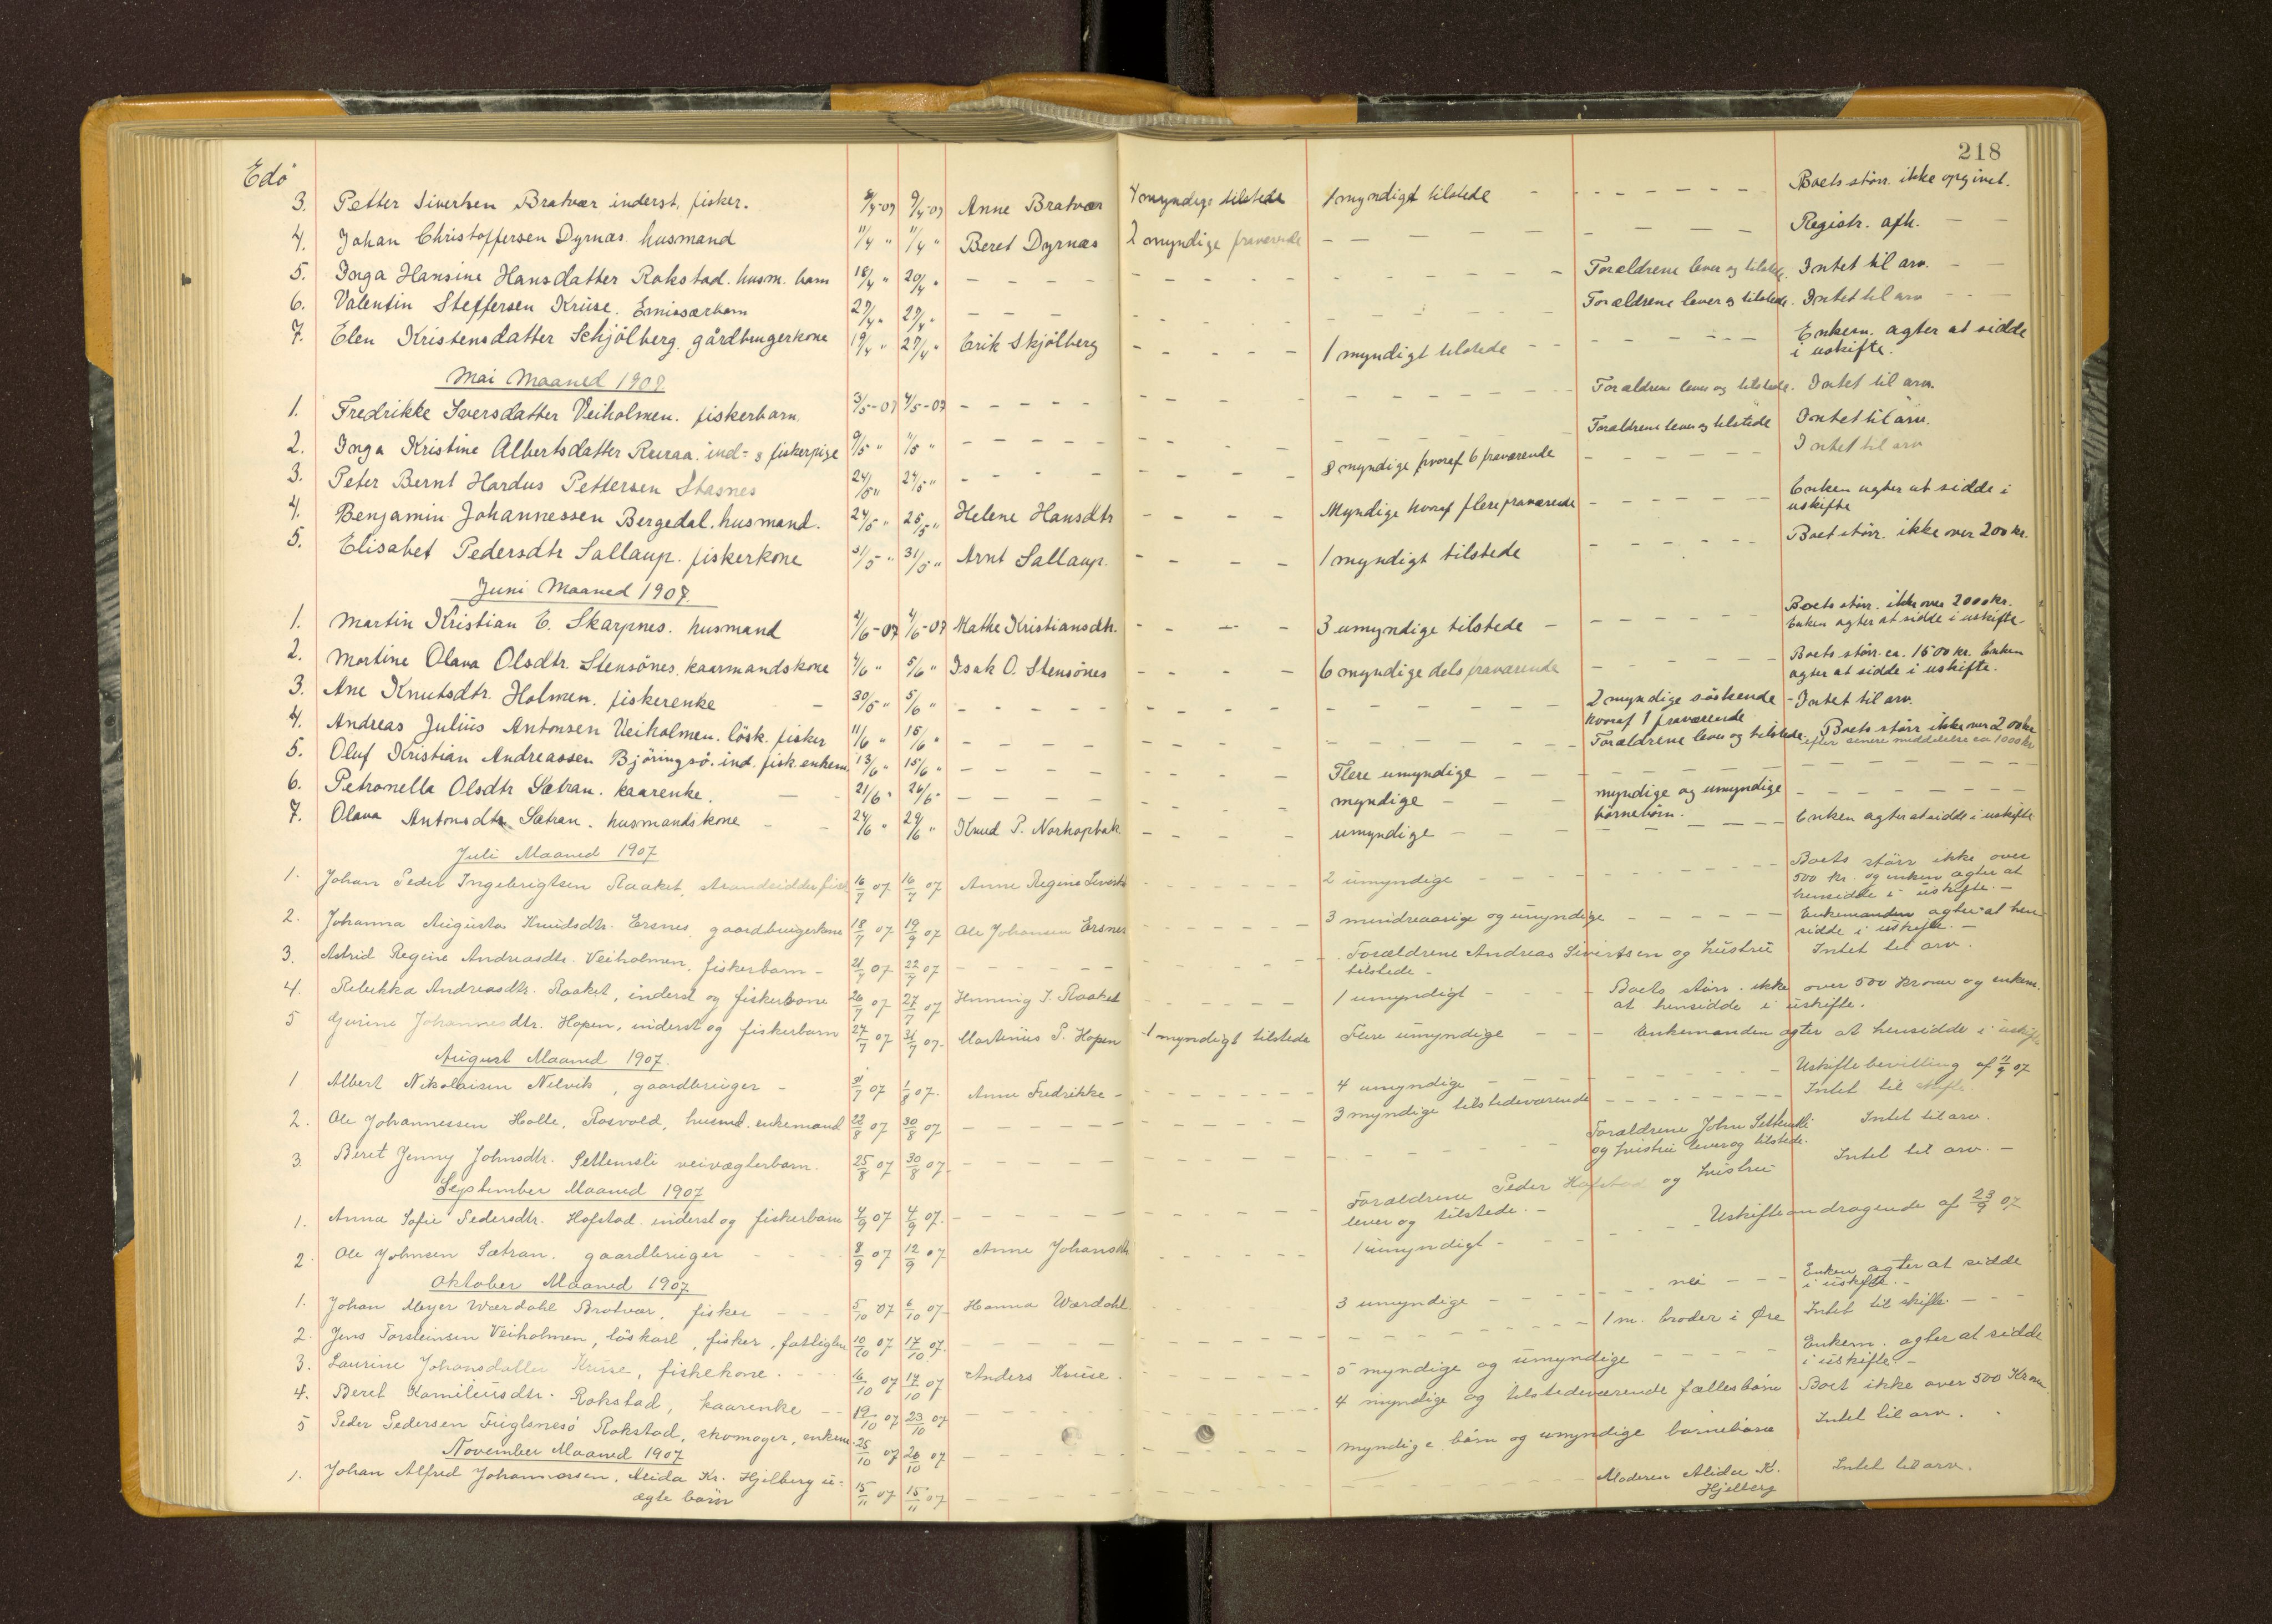 218
Edö
3. Petter Sivertsen Bratvær inderst, fisker. 9/4-07 Anne Bratvær 4 myndige tilstede 1 myndigt tilstede - - - - - - Boets störr. ikke opgivet.
4. Johan Christoffersen Dyrnæs husmand 11/4 " 11/4 " Beret Dyrnæs 2 myndige fraværende - - - - - - Registr. afh. - -
5. Inga Hansine Hansdatter Rokstad. husm. barn 18/4 " 20/4 " - - - - Forældrene lever og tilstede. Intet til arv. - -
6. Valentin Steffersen Krüse. Emissærbarn 27/4 " 27/4 " - - - Forældrene lever og tilstede. Intet til arv - -
7. Elen Kristensdatter Schjölberg. gårdbrugerkone 19/4 " 27/4 " Erik Skjölberg - - - - 1 myndigt tilstede - - - - - Enkem. agter at sidde
i uskifte.
Mai Maaned 1907.
1. Fredrikke Iversdatter Veiholmen. fiskerbarn 3/5-07 4/5-07 - - - - - Forældrene lever og tilstede. Intet til arv.
2. Inga Kristine Albertsdatter Ruraa. ind= & fiskerpige 9/5 " 11/5 " - - - - - Forældrene lever og tilstede Intet til arv.
3. Peter Bernt Hardus Pettersen Stasnes 24/5 " 24/5 " - - - - 8 myndige hvoraf 6 fraværende - - - - - Intet til arv
4. Benjamin Johannessen Bergedal. husmand. 24/5 " 25/5 " Helene Hansdtr - - - - Myndige hvoraf flere fraværende - - - - - Enken agter at sidde i
uskifte
5. Elisabet Pedersdtr Sallaup. fiskerkone 31/5 " 31/5 " Arnt Sallaup. - - - - 1 myndigt tilstede - - - - - Boet störr. ikke over 200 kr.
Juni Maaned 1907.
1. Martin Kristian E. Skarpnes. husmand 2/6-07 4/6-07 Mathe Kristiansdtr. - - - - 3 umyndige tilstede - - - - - Boets störr. ikke over 2000 kr.
Enken agter at sidde i uskifte.
2. Martine Olava Olsdtr. Stensönes. kaarmandskone 4/6 " 5/6 " Isak O. Stensönes - - - - 6 myndige dels fraværende - - - - Boets störr. ca. 1600 kr. Enken
agter at sidde i uskifte.
3. Ane Knutsdtr. Holmen. fiskerenke - 30/5 " 5/6 " - - - - - 2 myndige söskende - Intet til arv.
hvoraf 1 fraværende
4. Andreas Julius Antonsen Veiholmen. lösk. fisker 11/6 " 15/6 " - - - - Forældrene lever og tilstede. Boets störr ikke over 200 kr
efter senere meddelelse ca 1000 kr
5. Oluf Kristian Andreassen Björingsö. ind. fisk. enkem. 13/6 " 15/6 " - - - - Flere umyndige - - - - -
6. Petronella Olsdtr Sætran. kaarenke. - 21/6 " 26/6 " - - - - myndige - - - myndige og umyndige - - - - -
börnebörn.
7. Olava Antonsdtr Sætran. husmandskone - - 24/6 " 29/6 " Knud P. Norhopbak - - - - umyndige - - - - Enken agter at sidde i uskifte
Juli Maaned 1907
1. Johan Peder Ingebrigtsen Raaket, strandsidder 16/7 07 16/7 07 Anne Regine - - - - - - 2 umyndige - - - - - Boets störr ikke over
500 kr. og enken agter at
hensidde i uskifte. -
2. Johanna Augusta Knudsdtr. Ersnes, gaardbrugerkone 18/7 07 19/9 07 Ole Johansen Ersnes - - - - - 3 mindreaarige og umyndige - - - - - Enkemanden agter at hen
sidde i uskifte. -
3. Astrid Regine Andreasdtr. Veiholmen, fiskerbarn - 21/7 07 22/7 07 - - - - - Forældrene Andreas Sivertsen og hustru Intet til arv.
tilstede -
4. Rebekka Andreasdtr. Raaket, inderst og fiskerkone 26/7 07 27/7 07 Henning J. Raaket - - - - - 1 umyndigt - - - - Boets störr. ikke over 500 kroner og enkem.
at hensidde i uskifte.
5 Gurine Johannesdtr. Hopen, inderst og fiskerbarn 27/7 07 31/7 07. Martinus P. Hopen 1 myndigt tilstede Flere umyndige - - - Enkemanden agter at hensidde i uskifte
August Maaned 1907.
1 Albert Nikolaisen Nelvik, gaardbruger - 31/7 07 1/8 07. Anne Fredrikke - - - - - - 4 umyndige - - - - - Uskiftebevilling af 11/9 07
2. Ole Johannessen Holle, Rosvold, husmd. enkemand 22/8 07 30/8 07 - - - - - 3 myndige tilstedeværende - - - - - Intet til skifte.
3. Beret Jenny Johnsdtr. Settemsli veivogterbarn. 25/8 07 30/8 07. - - - - - Forældrene John Settemsli Intet til arv.
og hustru lever og tilstede.
September Maaned 1907
1. Anna Sofie Pedersdtr. Hofstad. inderst og fiskerbarn 4/9 07 4/9 07. - - - - - Forældrene Peder Hofstad og hustru Intet til arv. -
lever og tilstede. -
2. Ole Johnsen Sætran. gaardbruger - - - 8/9 07 12/9 07 Anne Johansdtr - - - - - 1 umyndigt - - - - - Uskifteandragende af 23/9 07
Oktober Maaned 1907
1. Johan Meyer Wærdahl Bratvær, fisker - - - 5/10 07 6/10 07- Hanna Wærdahl - - - - - 3 umyndige - - - - nei - - - Enken agter at sidde
i uskifte. -
2. Jens Torsteinsen Veiholmen, löskarl, fisker, fattiglem 10/10 07 17/10 07. - - - - - 1 m. broder i Øre Intet til skifte - - -
3. Laurine Johansdatter Kruse, fiskekone. - - - 16/10 07 17/10 07 Anders Kruse. - - - - - 5 myndige og umyndige - - - - Enkem. agter at sidde
i uskifte. -
4. Beret Kamiliusdtr. Rokstad, kaarenke - - 19/10 07 23/10 07 - - - - - 4 myndige og tilstedeværende fællesbörn Boet ikke over 500 Kroner
5 Peder Pedersen Fuglsnesö Rokstad, skomager, enkem. 25/10 07 26/10 07 - - - - - myndige börn og umyndige barnebörn Intet til arv.
November Maaned 1907
1. Johan Alfred Johannessen, Alida Kr. Hjelberg u= 15/11 07 15/11 07 - - - - - Moderen Alida K. Intet til arv.
ægte barn Hjelberg